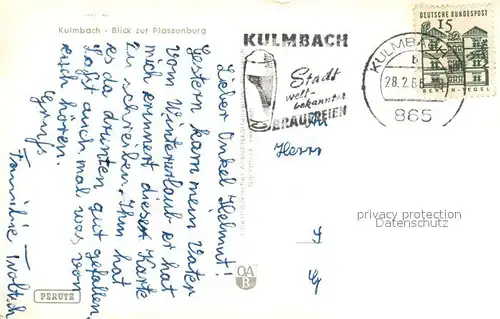 Kulmbach - Blick zur Plassenburg
Lieber Onkel Helmut!
Gestern kam mein Vater
vom Winterurlaub er hat
mich erinnert dieser Karte
zu schreiben. Ihm hat
es da drunten gut gefallen.
laßt auch mal was von
euch hören.
Gruß
Familie
PERUTZ
OA
B
KULMBACH
Stadt
welt-
bekannter
BRAUEREIEN
KULMBACH
b
28.2.6
865
DEUTSCHE BUNDESPOST
15
BERLIN-TEGEL
Herrn
privacy protection
www.oldthing.de